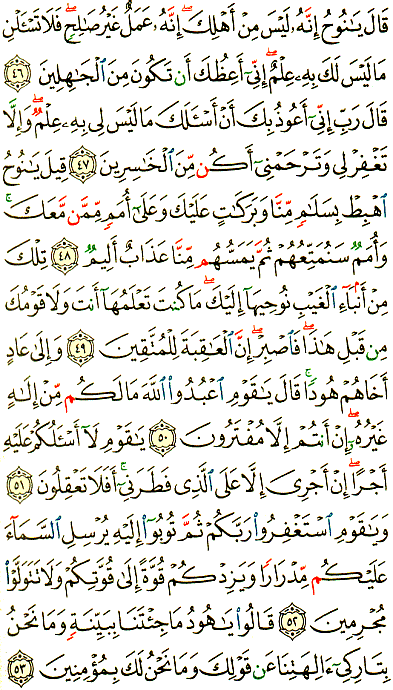 قَالَ يَـٰنُوحُ إِنَّهُۥ لَيْسَ مِنْ أَهْلِكَ ۖ إِنَّهُۥ عَمَلٌ غَيْرُ صَـٰلِحٍ ۖ فَلَا تَسْـَٔلْنِ
مَا لَيْسَ لَكَ بِهِۦ عِلْمٌ ۖ إِنِّىٓ أَعِظُكَ أَن تَكُونَ مِنَ ٱلْجَـٰهِلِينَ ٤٦
قَالَ رَبِّ إِنِّىٓ أَعُوذُ بِكَ أَنْ أَسْـَٔلَكَ مَا لَيْسَ لِى بِهِۦ عِلْمٌ ۖ وَإِلَّا
تَغْفِرْ لِى وَتَرْحَمْنِىٓ أَكُن مِّنَ ٱلْخَـٰسِرِينَ ٤٧ قِيلَ يَـٰنُوحُ
ٱهْبِطْ بِسَلَـٰمٍ مِّنَّا وَبَرَكَـٰتٍ عَلَيْكَ وَعَلَىٰٓ أُمَمٍ مِّمَّن مَّعَكَ ۚ
وَأُمَمٌ سَنُمَتِّعُهُمْ ثُمَّ يَمَسُّهُم مِّنَّا عَذَابٌ أَلِيمٌ ٤٨ تِلْكَ
مِنْ أَنۢبَآءِ ٱلْغَيْبِ نُوحِيهَآ إِلَيْكَ ۖ مَا كُنتَ تَعْلَمُهَآ أَنتَ وَلَا قَوْمُكَ
مِن قَبْلِ هَـٰذَا ۖ فَٱصْبِرْ ۖ إِنَّ ٱلْعَـٰقِبَةَ لِلْمُتَّقِينَ ٤٩ وَإِلَىٰ عَادٍ
أَخَاهُمْ هُودًا ۚ قَالَ يَـٰقَوْمِ ٱعْبُدُوا۟ ٱللَّهَ مَا لَكُم مِّنْ إِلَـٰهٍ
غَيْرُهُۥٓ ۖ إِنْ أَنتُمْ إِلَّا مُفْتَرُونَ ٥٠ يَـٰقَوْمِ لَآ أَسْـَٔلُكُمْ عَلَيْهِ
أَجْرًا ۖ إِنْ أَجْرِىَ إِلَّا عَلَى ٱلَّذِى فَطَرَنِىٓ ۚ أَفَلَا تَعْقِلُونَ ٥١
وَيَـٰقَوْمِ ٱسْتَغْفِرُوا۟ رَبَّكُمْ ثُمَّ تُوبُوٓا۟ إِلَيْهِ يُرْسِلِ ٱلسَّمَآءَ
عَلَيْكُم مِّدْرَارًا وَيَزِدْكُمْ قُوَّةً إِلَىٰ قُوَّتِكُمْ وَلَا تَتَوَلَّوْا۟
مُجْرِمِينَ ٥٢ قَالُوا۟ يَـٰهُودُ مَا جِئْتَنَا بِبَيِّنَةٍ وَمَا نَحْنُ
بِتَارِكِىٓ ءَالِهَتِنَا عَن قَوْلِكَ وَمَا نَحْنُ لَكَ بِمُؤْمِنِينَ ٥٣